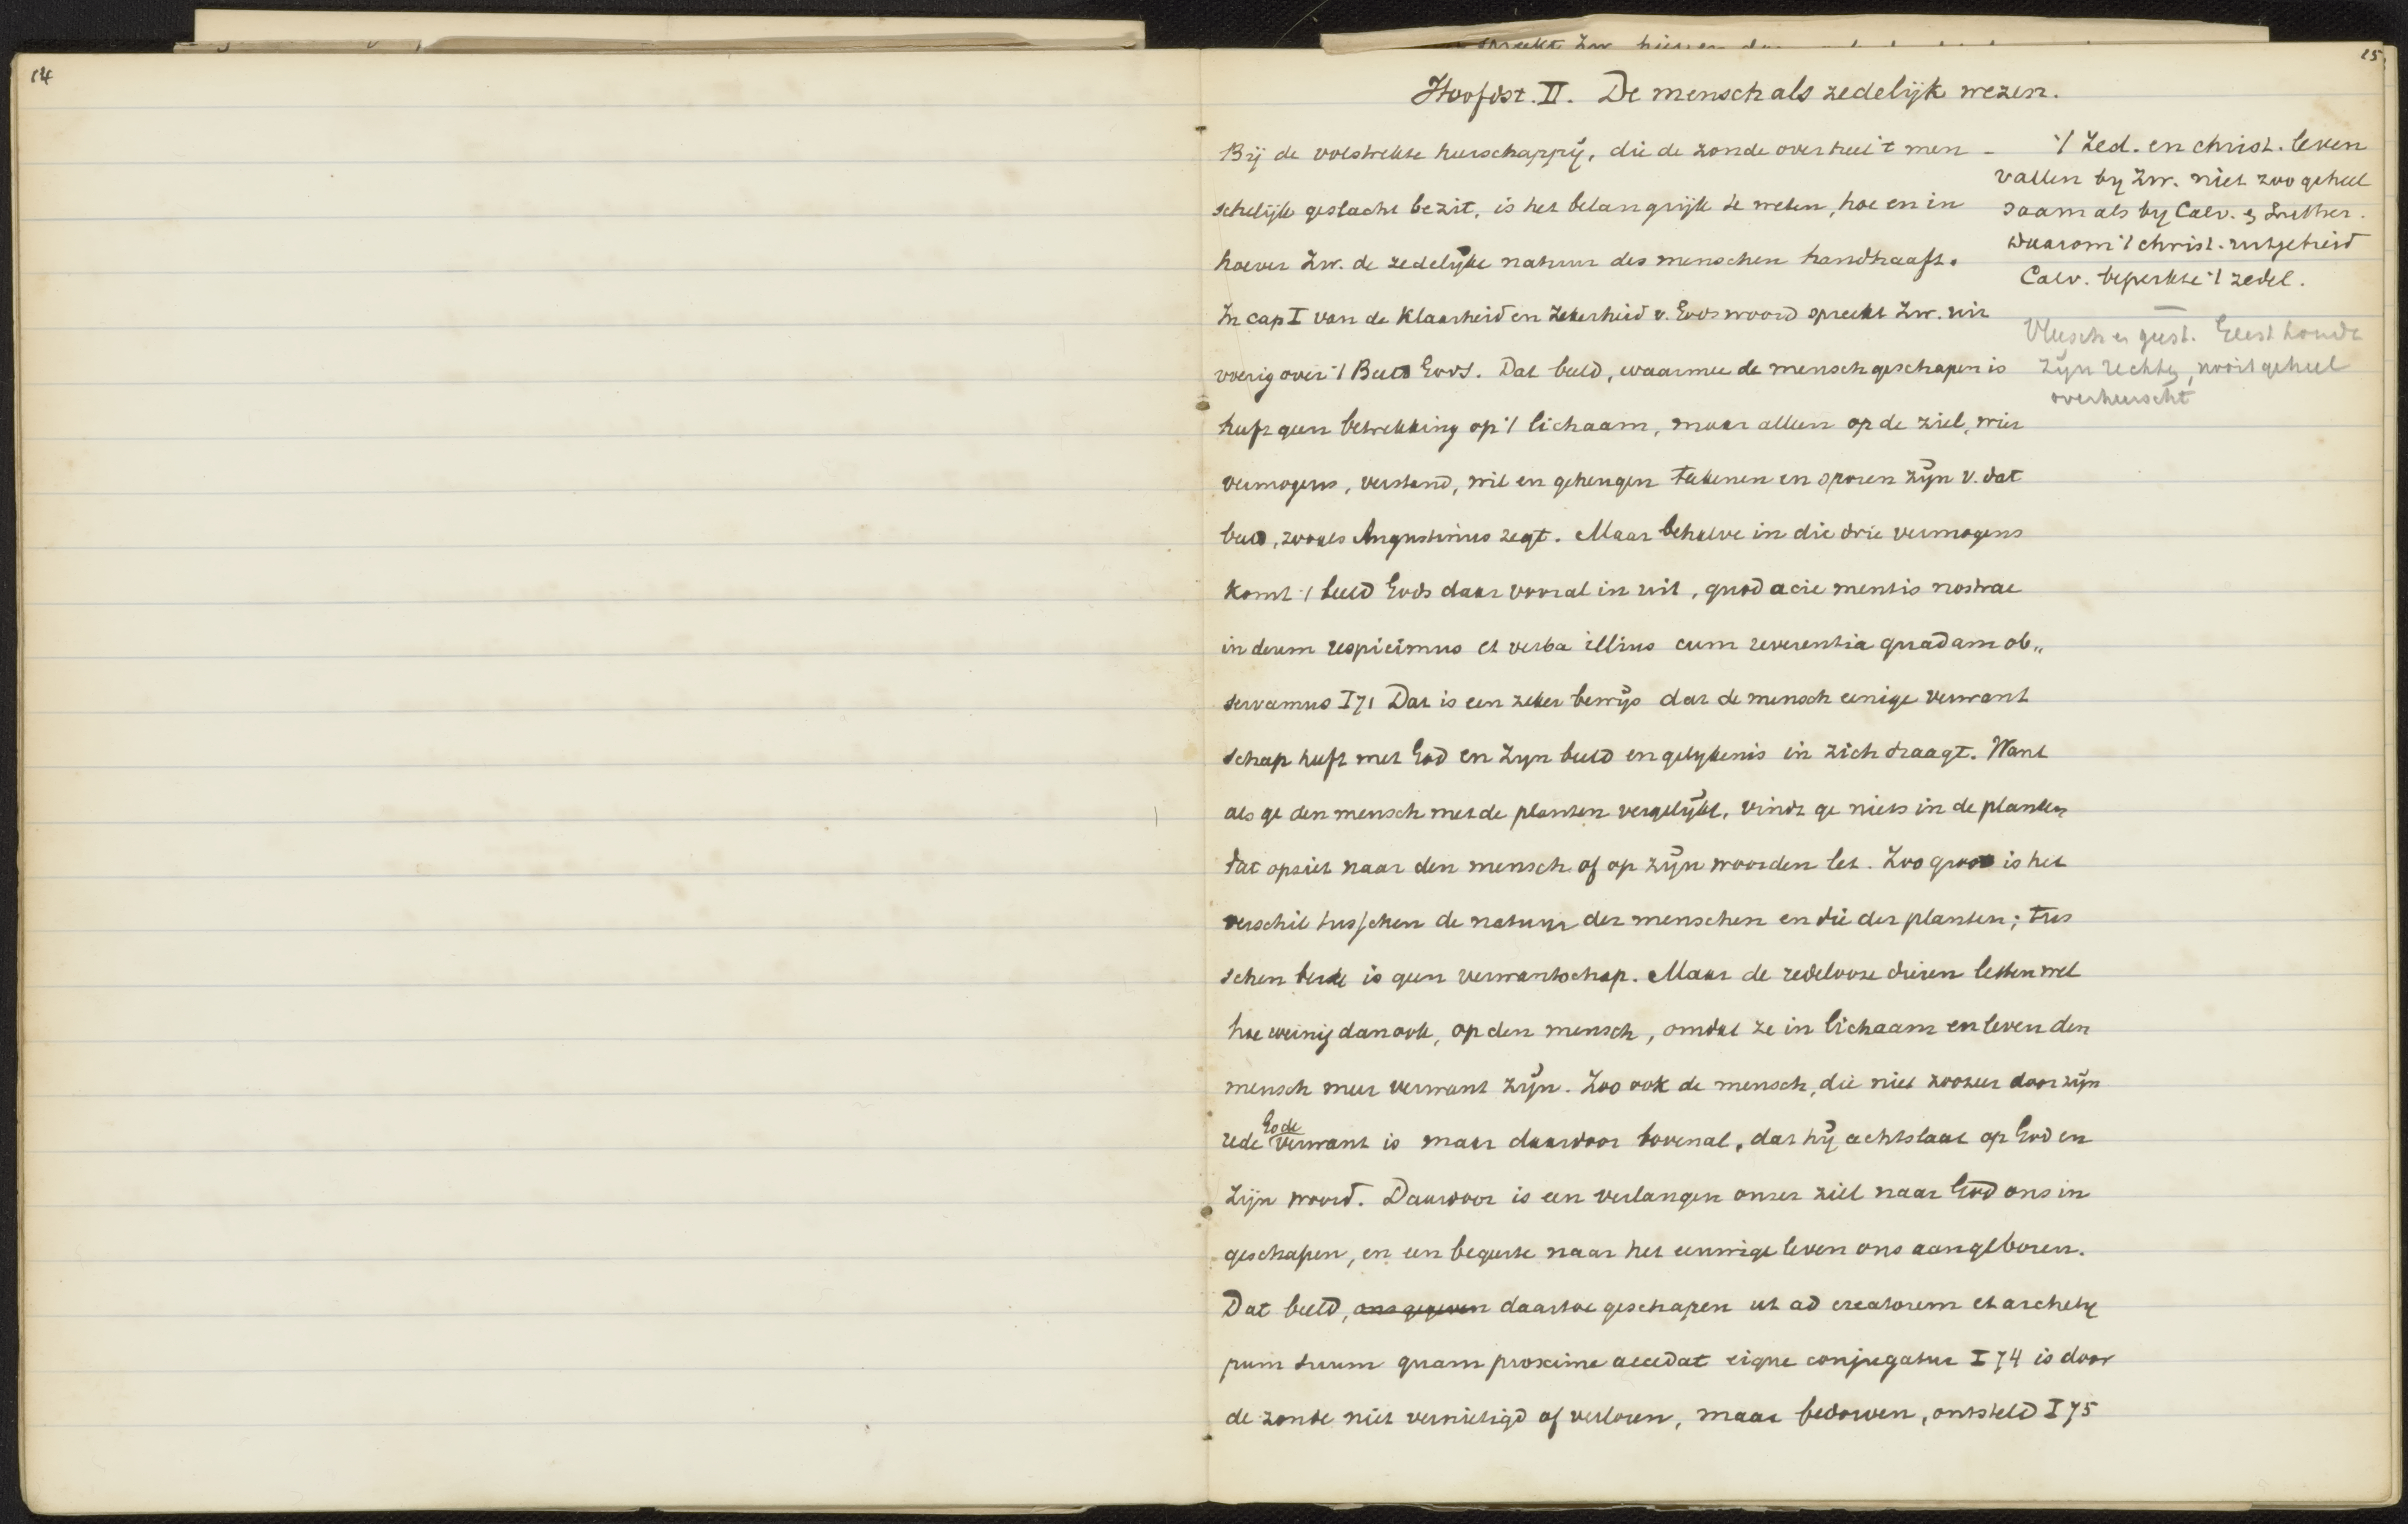 14
15
Hoofdst. II. De mensch als zedelijk wezen.
Bij de volstrekte heerschappij, die de zonde over heel 't men-
schelijk geslacht bezit, is het belangrijk te weten, hoe en in
hoever Zw. de zedelijke natuur des menschen handhaaft.
In cap I van de Klaarheid en Zekerheid v. Gods woord spreekt Zw. uit
voerig over 't Beeld Gods. Dat beeld, waarmee de mensch geschapen is
heeft geen betrekking op 't lichaam, maar alleen op de ziel, wier
vermogens, verstand, wil en geheugen teekenen en sporen zijn v. dat
beeld, zooals Augustinus zegt. Maar behalve in die drie vermogens
komt 't beeld Gods daar vooral in uit, quod acie mentis nostrae
in deum respicimus et verba illius cum reverentia quadam ob„
servamus I 71 Dat is een zeker bewijs dat de mensch eenige verwant
schap heeft met God en Zijn beeld en gelijkenis in zich draagt. Want
als ge den mensch met de planten vergelijkt, vindt ge niets in de planten
dat opziet naar den mensch of op zijn woorden let. Zoo groot is het
verschil tusschen de natuur der menschen en die der planten; tus
schen beide is geen verwantschap. Maar de redelooze dieren letten wel
hoe weinig dan ook, op den mensch, omdat ze in lichaam en leven den
mensch meer verwant zijn. Zoo ook de mensch, die niet zoozeer door zijn
rede Gode verwant is maar daardoor bovenal, dat hij achtslaat op God en
Zijn woord. Daardoor is een verlangen onzer ziel naar God ons in
geschapen, en een begeerte naar het eeuwige leven ons aangeboren.
Dat beeld, ons gegeven daartoe geschapen ut ad creatorem et archety
pum suum quam proxime accedat eique conjugatur I 74 is door
de zonde niet vernietigd of verloren, maar bedorven, ontsteld I 75
't Zed. en christ. leven
vallen bij Zw. niet zoo geheel
saam als bij Calv. & Luther.
Waarom 't christ. uitgebreid
Calv. beperkte 't zedel.
Vleesch en geest. Geest houdt
zijn rechten, nooit geheel
overheerscht